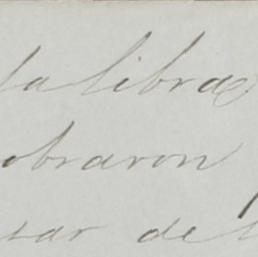 la libra
obraron
sar de